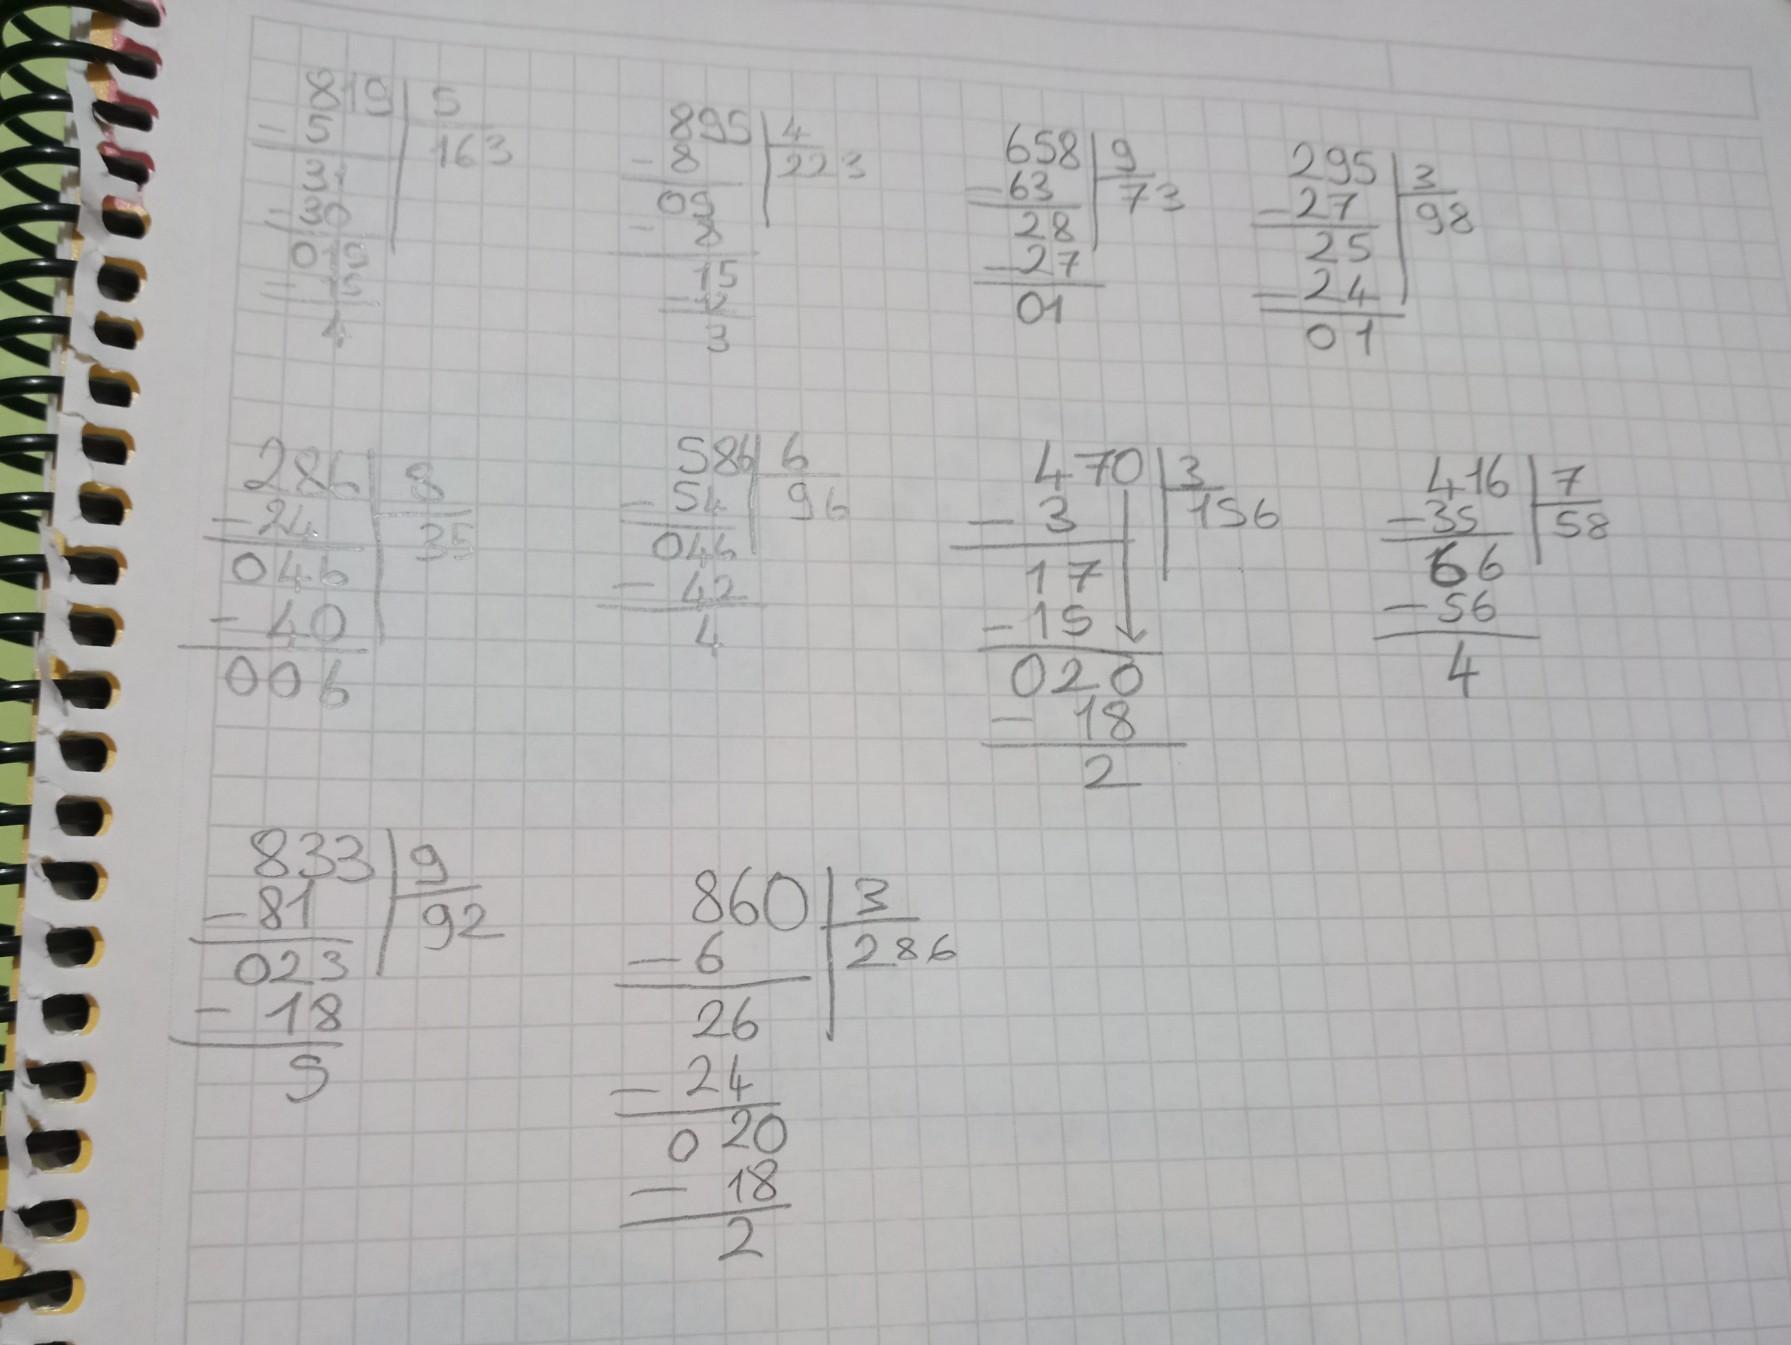 819 5
- 5 163
31
- 30
019
- 15
4
895 4
- 8 223
09
- 8
15
- 12
3
658 9
- 63 73
28
- 27
01
295 3
- 27 98
25
- 24
01
286 8
- 24 35
046
- 40
006
586 6
- 54 96
046
- 42
4
470 3
- 3 156
17
- 15
020
- 18
2
416 7
- 35 58
66
- 56
4
833 9
- 81 92
023
- 18
5
860 3
- 6 286
26
- 24
020
- 18
2